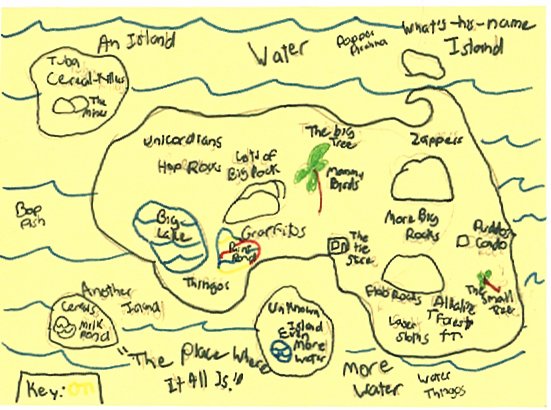 An Island
Water
Popper
Piranha
What's-his-name
Island
Tuba
Cereal-Killer
The
Mines
Unicordians
Hop Rocks
Lots of
Big Rock
The big
Tree
Mommy
Birds
Zappers
Big
Lake
Graffitos
Pond
The
tie
store
More Big
Rocks
Condo
Bop
Fish
Thingos
Flob Rocks
Alkaline
Forest
The
Small
Tree
Another
Island
Cereus
Milk
Pond
Unknown
Island
Even
More
Water
"The Place Where
It All Is."
More
Water
Water
Thingos
Key: on